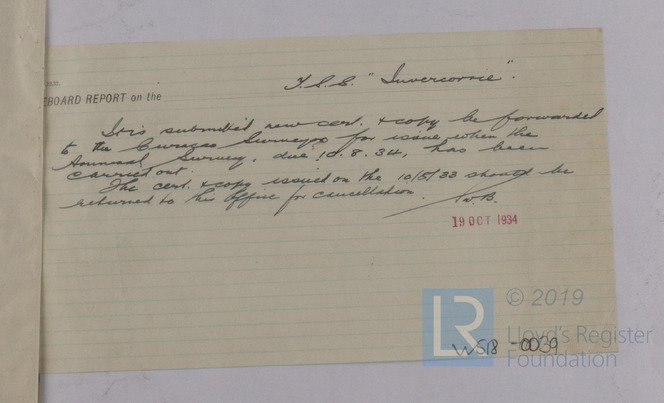 T.S.S. "Invercorrie".
BOARD REPORT on the
It is submitted new cert. & copy be forwarded
to the Curacao Surveyor for issue when the
Annual Survey, due 10.8.34, has been
carried out.
The cert. & copy issued on the 10/5/33 should be
returned to this Office for cancellation.
W.B.
19 OCT 1934
© 2019
LR
Lloyd's Register
Foundation
W518-0039